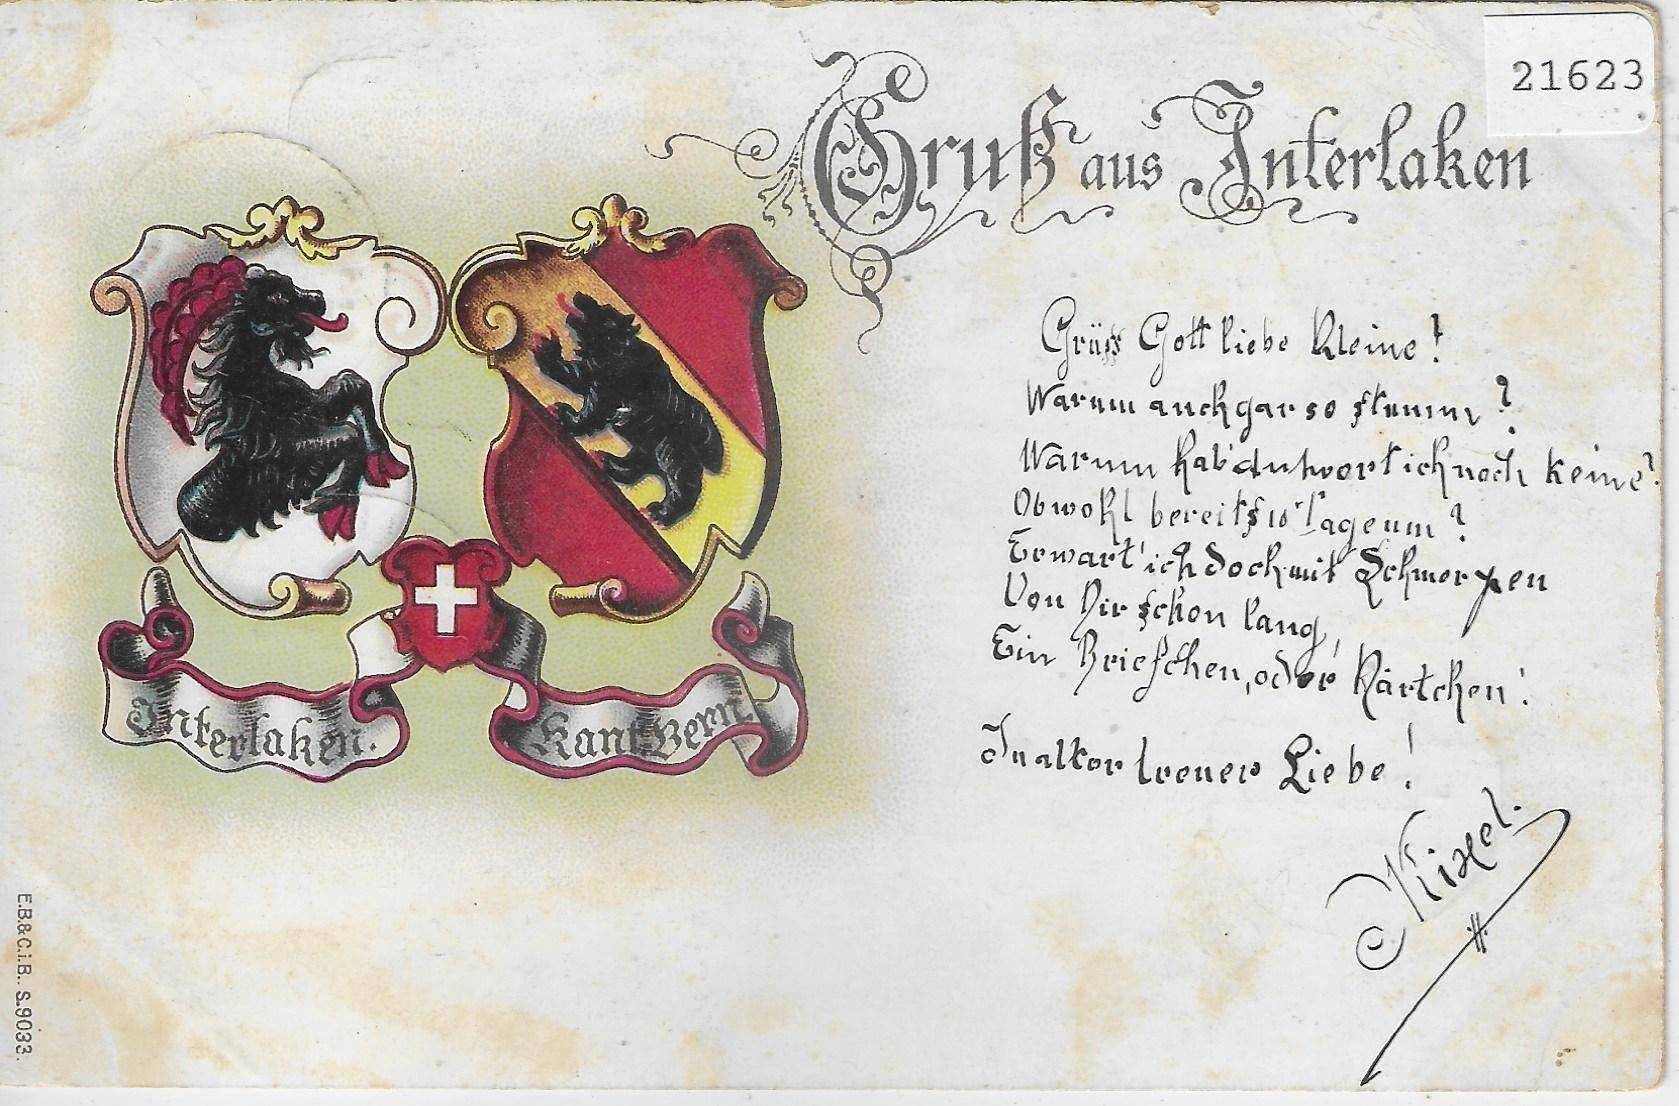 21623
Gruß aus Interlaken
Grüss Gott liebe Kleine!
Warum auch gar so stumm?
Warum hab' Antwort ich noch keine?
Obwohl bereits 10 Tage um?
Erwart' ich doch mit Schmerzen
Von Dir schon lang,
Ein Briefchen, oder Kärtchen!
In alter treuer Liebe!
Interlaken.
Kant. Bern.
E.B.&C.i.B.. S.9033.